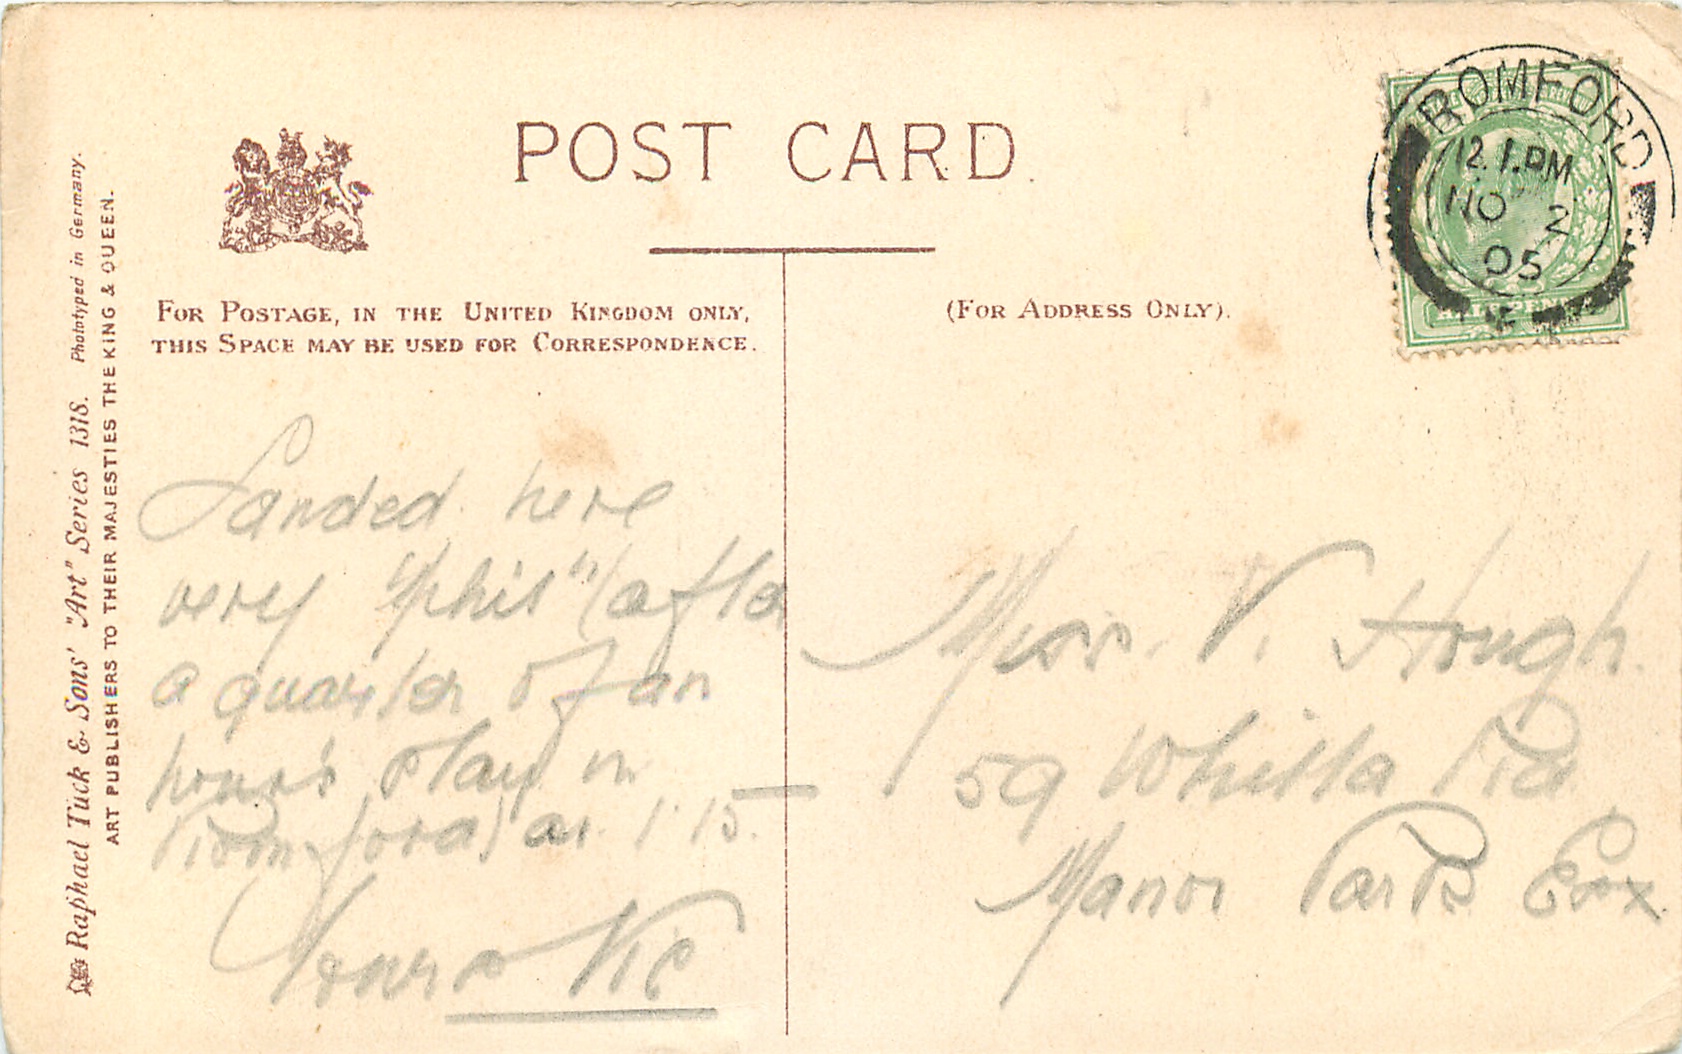 POST CARD
FOR POSTAGE, IN THE UNITED KINGDOM ONLY,
THIS SPACE MAY BE USED FOR CORRESPONDENCE.
(FOR ADDRESS ONLY).
ROMFORD
12.1.PM
NO 2
05
HALFPENNY
Raphael Tuck & Sons' "Art" Series 1318. Phototyped in Germany.
ART PUBLISHERS TO THEIR MAJESTIES THE KING & QUEEN.
Landed here
very "phit" (after
a quarter of an
hour's stay in
Romford) at 1.15.
Yours Vic
Miss. V. Hough.
59 Whitta Rd
Manor Park Essx